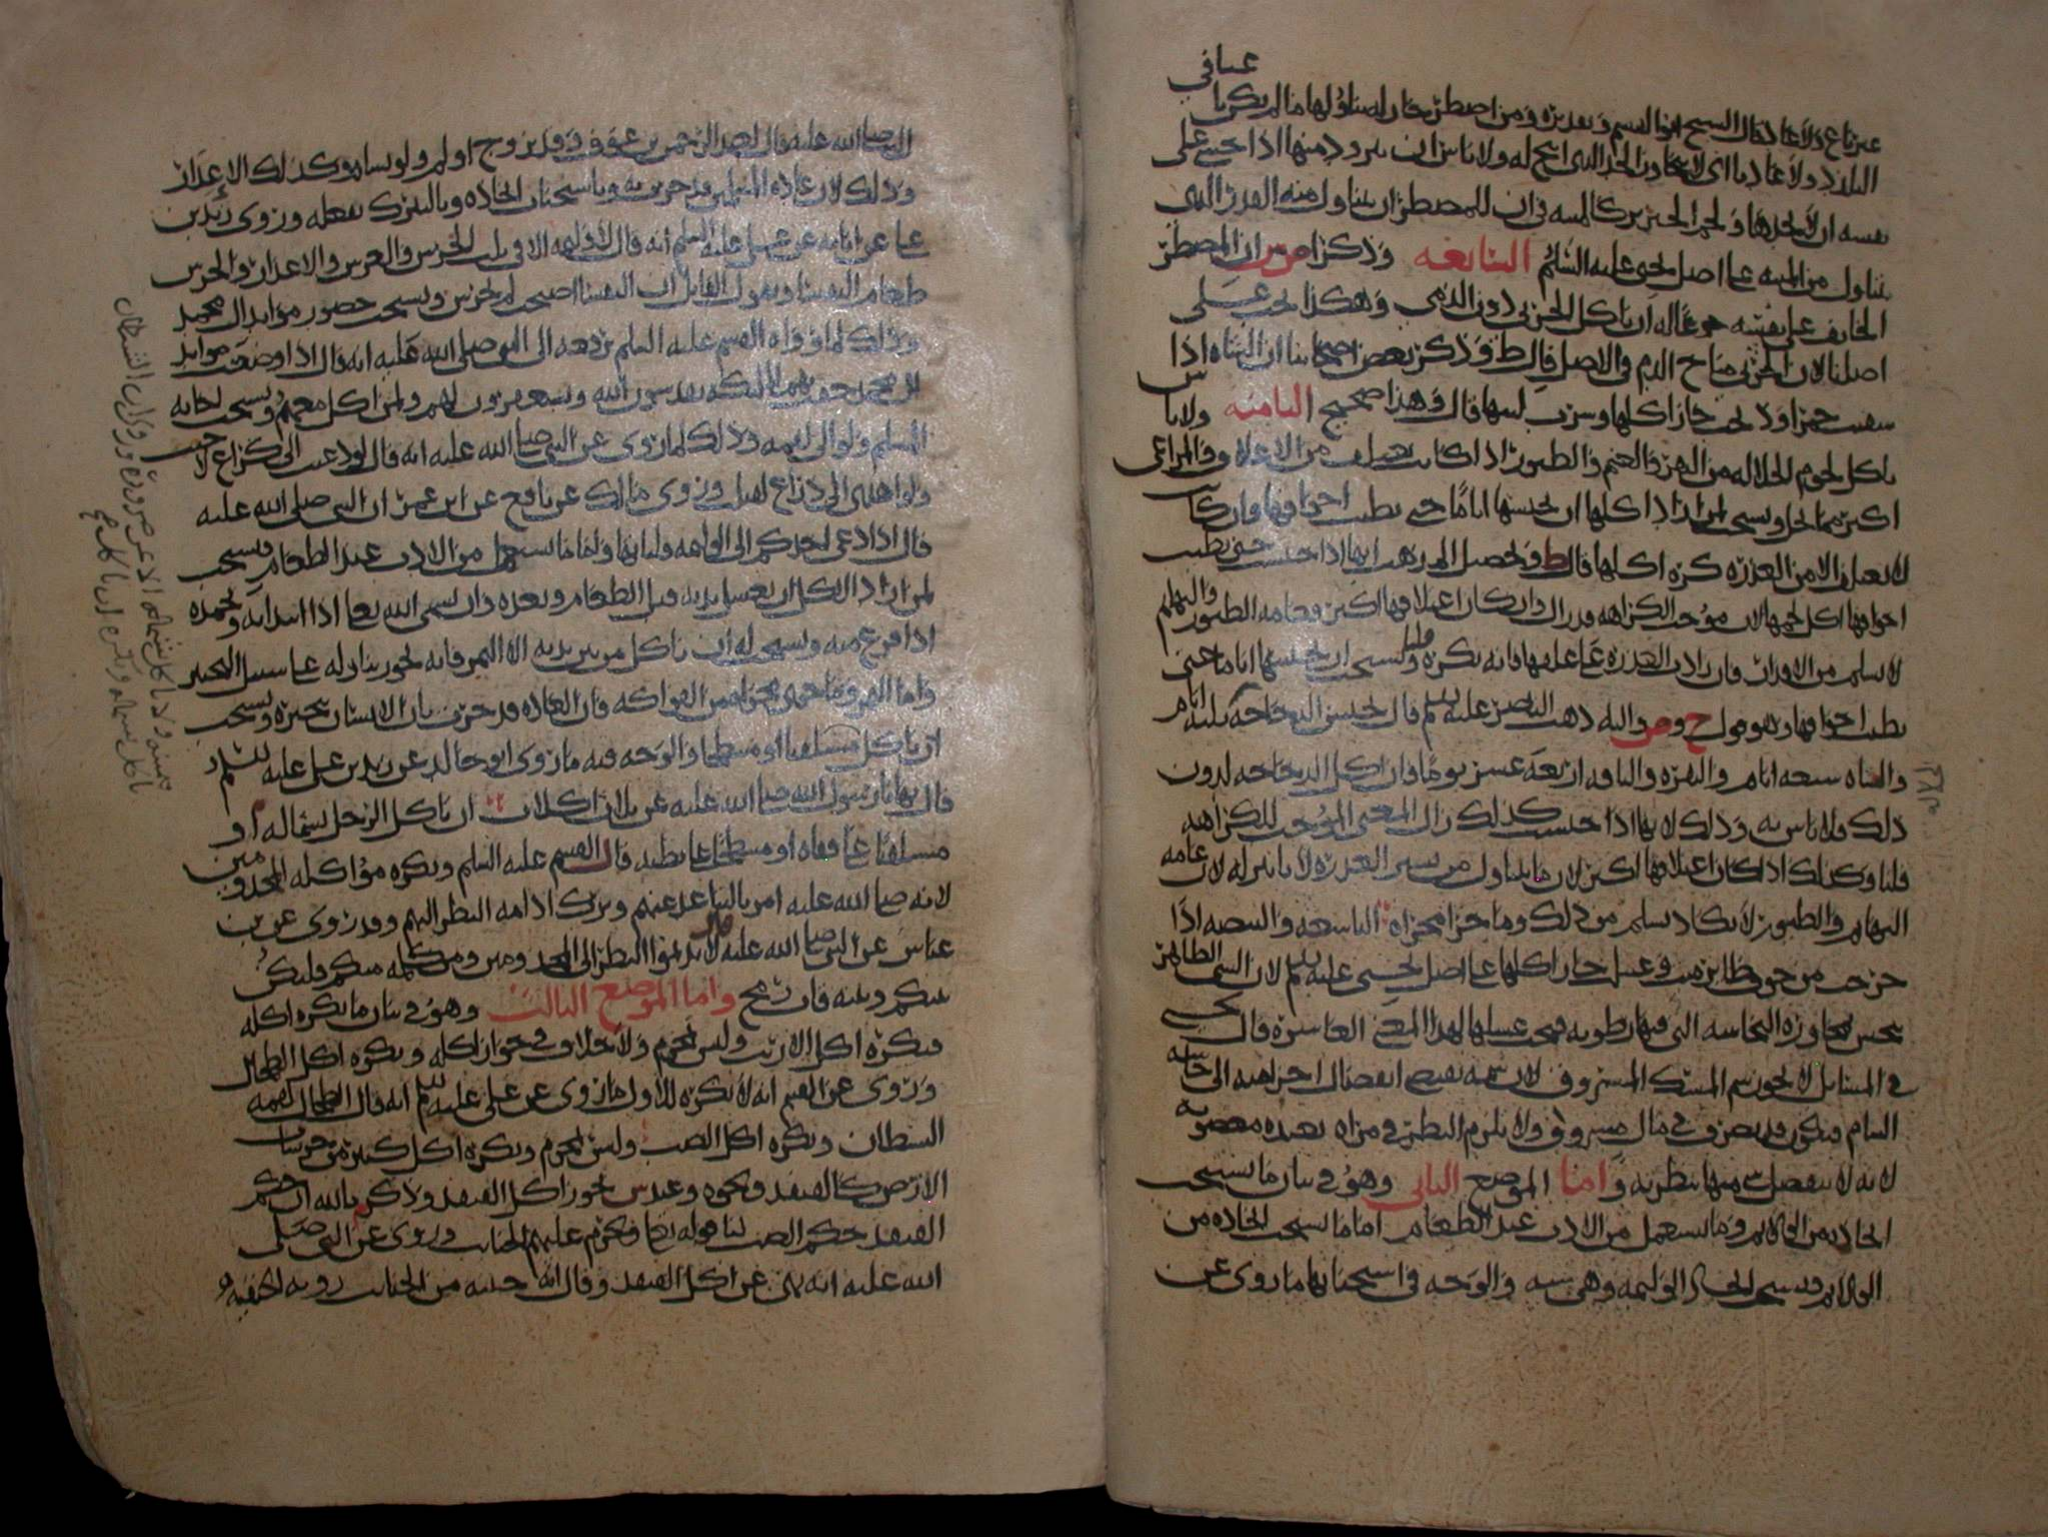 غير باغ ولا عاد قال الشيخ ابو القسم وتقديره ومن اضطر جاز له تناولها ما لم يكن باغيا في
التلذذ ولا عاديا اي لا يتجاوز الحد الذي ابيح له ولا باس ان يتزود منها اذا خشي على
نفسه ان لا يجدها ولحم الخنزير كالميته في ان للمضطر ان يتناول منه القدر الذي
يتناول من الميته على اصل يحيى عليه السلم السابعه وذكر ان المضطر
الخايف على نفسه جوعا له ان ياكل الحربي دون الذمي وهكذا يجب على
اصلنا لان الحربي مباح الدم في الاصل قال ط وذكر بعض اصحابنا ان الشاه اذا
سقيت خمرا وذبحت جاز اكلها وشرب لبنها قال وهذا صحيح الثامنه ولا باس
باكل لحوم الجلاله من البقر والغنم والطيور اذا كانت تعتلف من الاعلاف والمراعي
اكثر مما تجل ويستحب لمن اراد اكلها ان يحبسها اياما حتى تطيب اجوافها وان كانت
لا تعتلف الا من العذره كره اكلها قال ط وتحصيل المذهب انها اذا حبست حتى تطيب
اجوافها اكل لحمها لان موجب الكراهه قد زال وان كان اعتلافها اكثر فعامه الطيور والبهايم
لا تسلم من الاوراث فان زادت العذره على علفها فانه يكره قلنا ويستحب ان يحبسها اياما حتى
تطيب اجوافها وهو قول ح وص واليه ذهب الناصر عليه السلم قال تحبس الدجاجه ثلثه ايام
والشاه سبعه ايام والبقره والناقه اربعه عشر يوما وان اكل الدجاجه بدون
ذلك فلا باس به وذلك لانها اذا حبست كذلك زال المعنى الموجب للكراهه
قلنا وكذلك اذا كان اعتلافها اكثر لان ما يتناول من يسير العذره لا تاثير له لان عامه
البهايم والطيور لا تكاد تسلم من ذلك وما جرا مجراه التاسعه والبيضه اذا
خرجت من جوف طاير ميت وغسل جاز اكلها على اصل يحيى عليه السلم لان الشي الطاهر
ينجس بمجاوره النجاسه التي فيها رطوبه فيجب غسلها لهذا المعنى العاشره قال يحيى
في المسايل لا يجوز شم المسك المسروق لان شمه يقتضي انفصال اجزا منه الى حاسه
الشام فيكون قد تصرف في مال مسروق ولا يلزم النظر في مراه بيده مغصوبه
لانه لا ينفصل شي منها بنظره واما الموضع الثاني وهو في بيان ما يستحب
اتخاذه من الولايم وما يستعمل من الادب عند الطعام اما ما يستحب اتخاذه من
الولايم فيستحب اتخاذ الوليمه وهي سنه والوجه في استحبابها ما روي عن
النبي صلى الله عليه قال لعبد الرحمن بن عوف وقد تزوج اولم ولو بشاه وكذلك الاعذار
وذلك لان عاده المسلمين قد جرت به وباستحباب اتخاذه وبالتبرك بفعله وروى زيد بن
علي عن ابايه عن علي عليه السلم انه قال لا وليمه الا في ثلث الخرس والعرس والاعذار والخرس
طعام النفسا ويقول القايل ان النفسا اصبحت لم تخرس ويستحب حضور موايد ال محمد
وذلك لما رواه القسم عليه السلم يرفعه الى النبي صلى الله عليه انه قال اذا وضعت موايد
ال محمد حفت بهم الملئكه يقدسون الله ويستغفرون لهم ولمن اكل معهم ويستحب اجابه
المسلم ولو الى لقمه وذلك لما روي عن النبي صلى الله عليه انه قال لو دعيت الى كراع لاجبت
ولو اهدي الي ذراع لقبلت وروى مالك عن نافع عن ابن عمر ان النبي صلى الله عليه
قال اذا دعي احدكم الى الوليمه فلياتها واما ما يستعمل من الادب عند الطعام فيستحب
لمن اراد الاكل ان يغسل يديه قبل الطعام وبعده وان يسمي الله تعالى اذا ابتدا به ويحمده
اذا فرغ منه ويستحب له ان ياكل من بين يديه الا التمر فانه يجوز يتناوله على سبيل التخير
واما التمر وما جرى مجراه من الفواكه فان العاده قد جرت بان الانسان يتخيره ويستحب
ان ياكل مستلقيا او منبطحا والوجه فيه ما روى ابو خالد عن زيد بن علي عليه السلم
قال نهانا رسول الله صلى الله عليه عن ثلاث اكلات ان ياكل الرجل بشماله او
مستلقيا على قفاه او منبطحا على بطنه قال القسم عليه السلم ويكره مواكله المجذومين
لانه صلى الله عليه امر بالتباعد عنهم وترك ادامه النظر اليهم وقد روي عن بن
عباس عن النبي صلى الله عليه قال لا تديموا النظر الى المجذومين ومن كلمه منكم فليكن
بينكم وبينه قاب رمح واما الموضع الثالث وهو في بيان ما يكره اكله
فيكره اكل الارنب وليس بمحرم ولا خلاف في جواز اكله ويكره اكل الطحال
وروي عن القسم انه لا يكره للاول ما روي عن علي عليه السلم انه قال الطحال لقمه
الشيطان ويكره اكل الضب وليس بمحرم ويكره اكل كثير من حرشات
الارض كالقنفذ ونحوه وعند ش يجوز اكل القنفذ وذكر م بالله ان حكم
القنفذ حكم الضب لنا قوله تعالى ويحرم عليهم الخبايث وروي عن النبي صلى
الله عليه انه نهى عن اكل القنفذ وقال انه خبيثه من الخبايث رويه الحنفيه